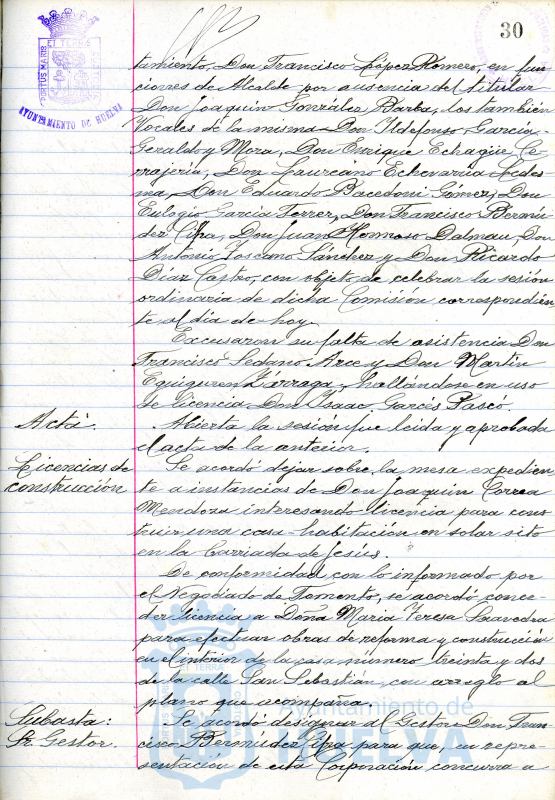 30
PORTUS MARIS ET TERRAE CUSTODIA
AYUNTAMIENTO DE HUELVA
tamiento, Don Francisco López Romero, en fun
ciones de Alcalde por ausencia del titular
Don Joaquín González Barba, los también
Vocales de la misma Don Ildefonso García
Geraldo y Mora, Don Enrique Echagüe Ce-
rrajería, Don Laureano Echevarria Ledes-
ma, Don Eduardo Bacedoni Gómez, Don
Eulogio García Ferrer, Don Francisco Bermú
dez, Don Juan Hermoso Dalmau, Don
Antonio Toscano Sánchez y Don Ricardo
Díaz Castro, con objeto de celebrar la sesión
ordinaria de dicha Comisión correspondien
te al día de hoy.
Excusaron su falta de asistencia Don
Francisco Sedano Arce y Don Martín
Eguiguren Lárraga, hallándose en uso
de licencia Don Isaac Garcés Pascó.
Acta.
Abierta la sesión fue leida y aprobada
el acta de la anterior.
Licencias de
construcción
Se acordó dejar sobre la mesa expedien-
te a instancias de Don Joaquin Correa
Mendoza interesando licencia para cons
truir una casa-habitación en solar sito
en la Barriada de Jesús.
De conformidad con lo informado por
el Negociado de Fomento, se acordó conce-
der licencia a Doña Maria Teresa Saavedra
para efectuar obras de reforma y construcción
en el interior de la casa número treinta y dos
de la calle San Sebastián, con arreglo al
plano que acompaña.
Subasta:
Sr. Gestor.
Se acordó designar al Gestor Don Fran-
cisco Bermúdez para que, en repre-
sentación de esta Corporación concurra a
Ayuntamiento de
HUELVA